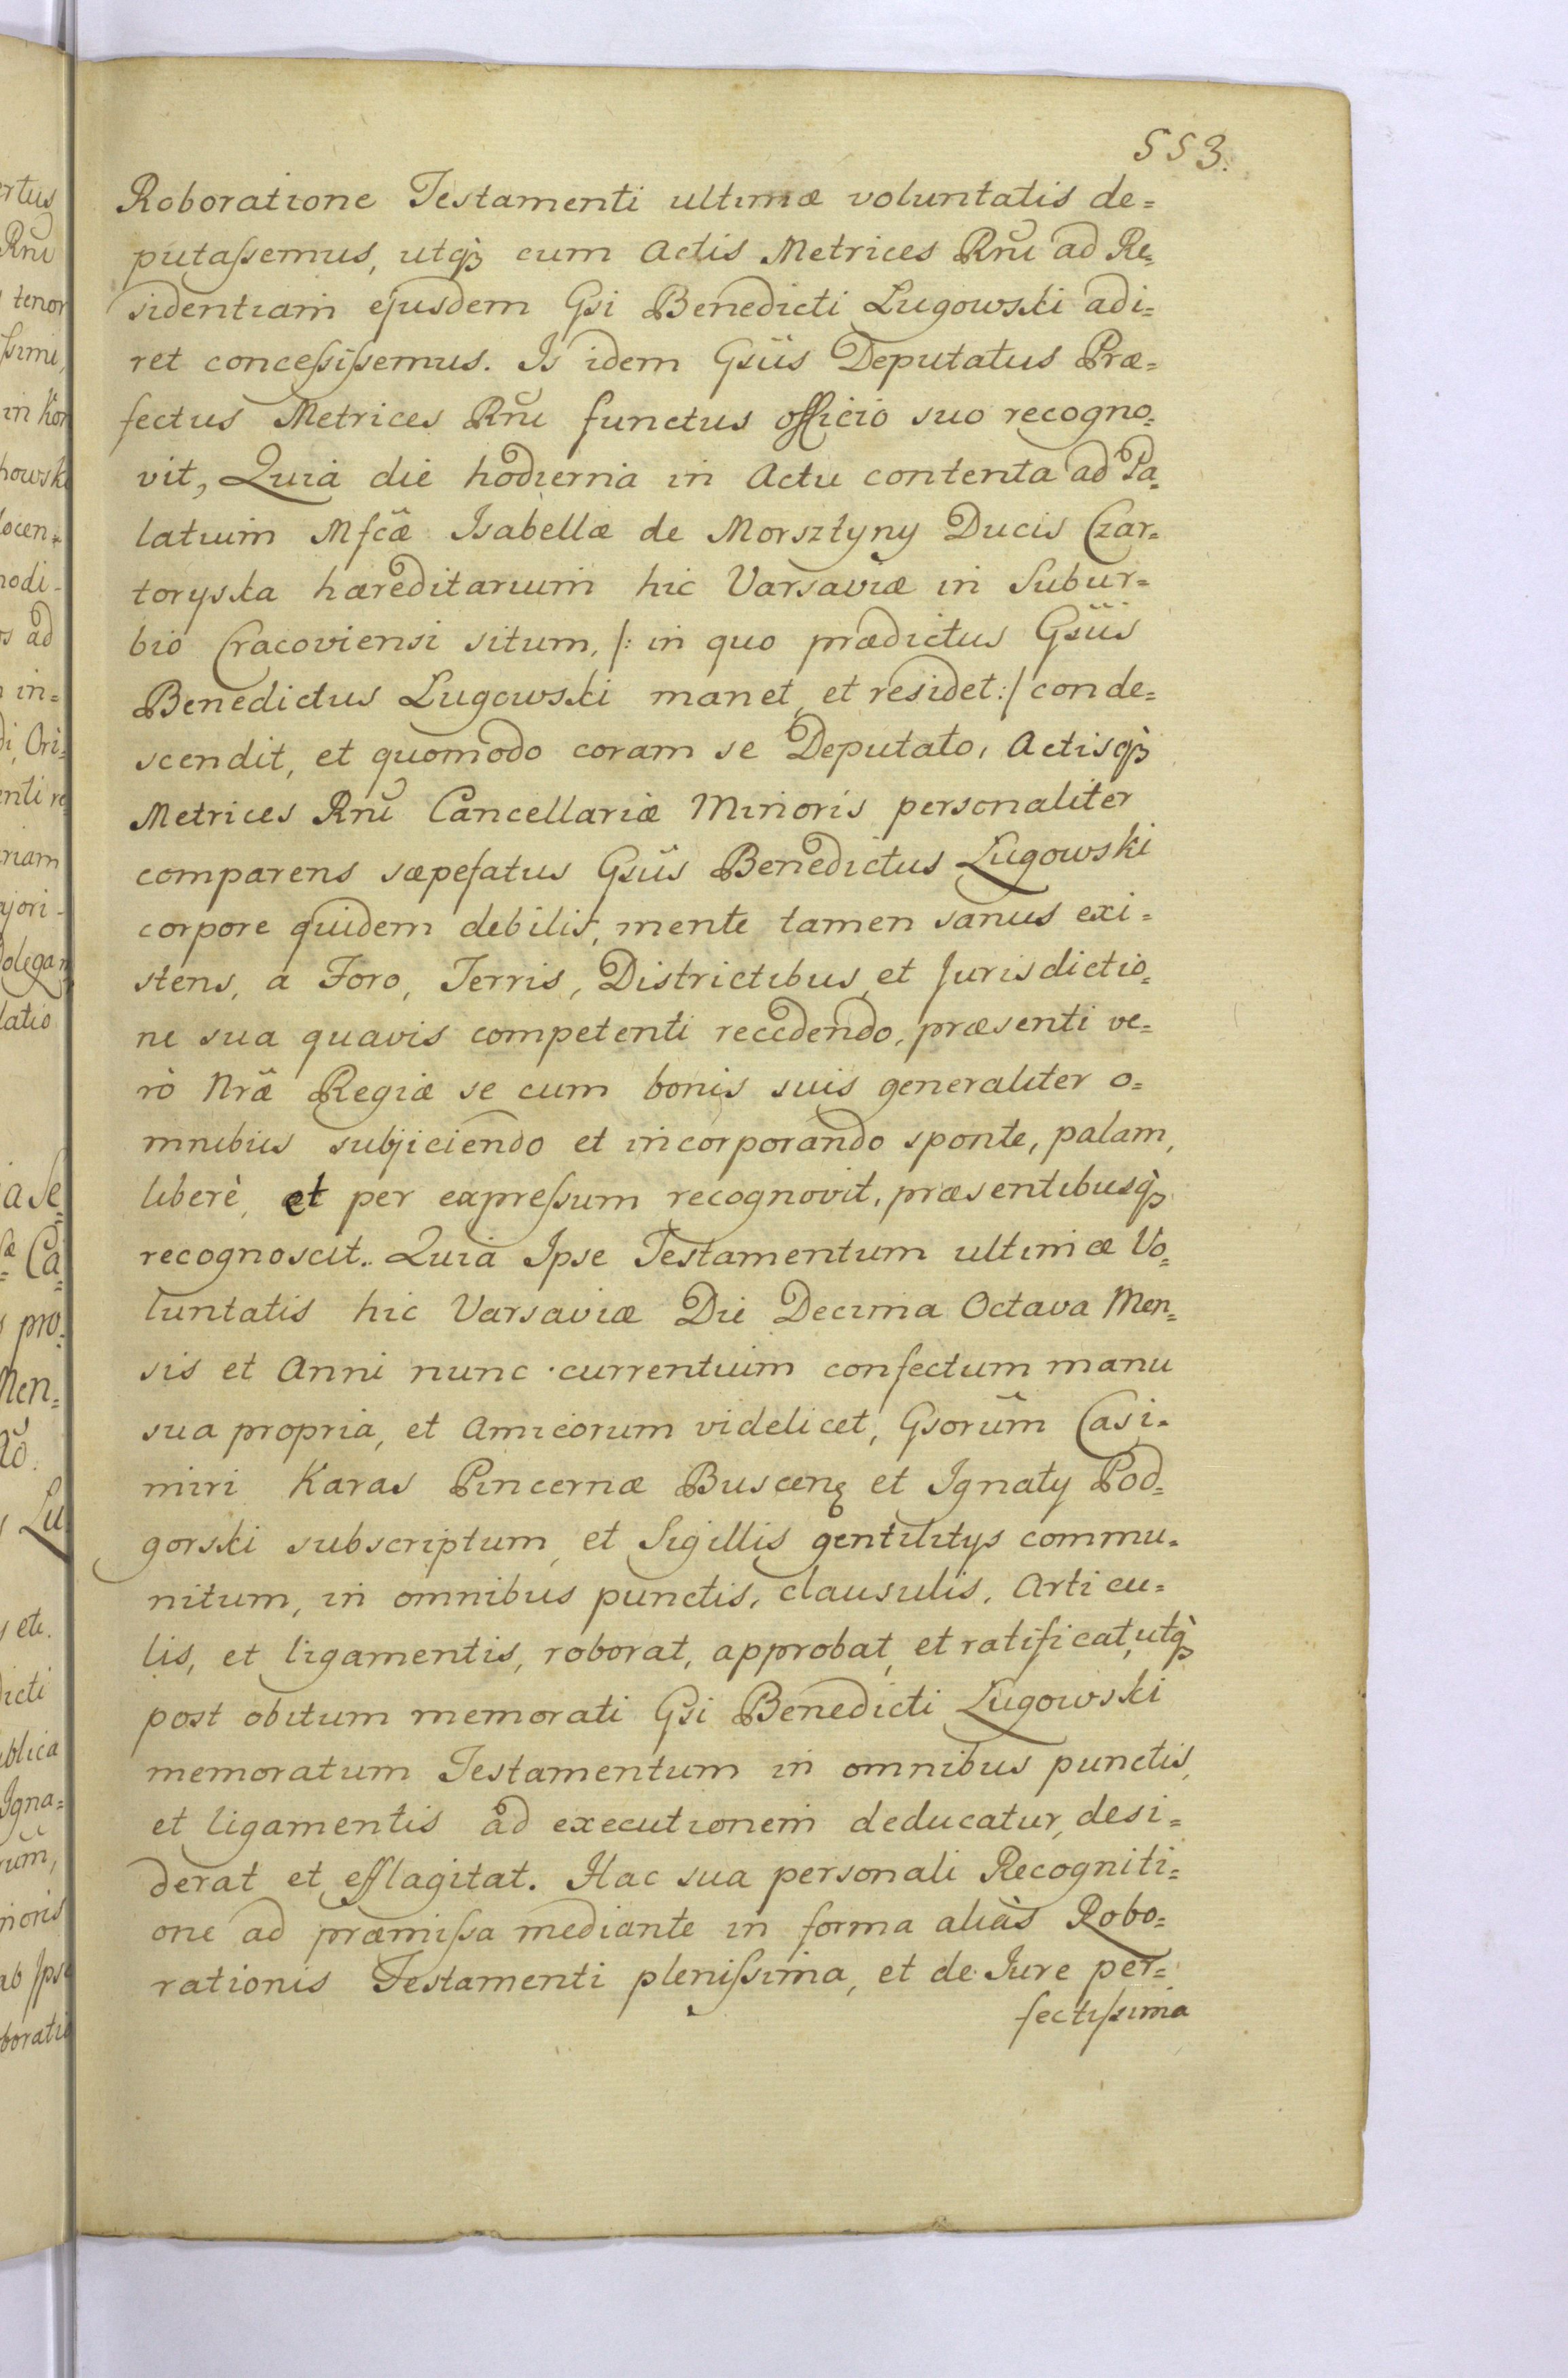 553.
Roboratione Testamenti ultimæ voluntatis de=
putaſsemus, utqꝫ cum Actis Metrices Rñi ad Re=
sidentiam ejusdem Gsi Benedicti Lugowski adi=
ret conceſsiſsemus. Is idem Gsus Deputatus Præ=
fectus Metrices Rñi functus officio suo recogno=
vit, Quia die hodierna in Actu contenta ad Pa=
latium Mfcæ Isabellæ de Morsztyny Ducis Czar=
toryska hæreditarium hic Varsaviæ in Subur=
bio Cracoviensi situm, /: in quo prædictus Gsus
Benedictus Lugowski manet, et residet :/ conde=
scendit, et quomodo coram se Deputato, Actisqꝫ
Metrices Rñi Cancellariæ Minoris personaliter
comparens sæpefatus Gsus Benedictus Lugowski
corpore quidem debilis, mente tamen sanus exi=
stens, a Foro, Terris, Districtibus, et Jurisdictio=
ne sua quavis competenti recedendo, præsenti ve=
rò Nræ Regiæ se cum bonis suis generaliter o=
mnibus subjiciendo et incorporando sponte, palam,
liberè, et per expreſsum recognovit, præsentibusqꝫ
recognoscit. Quia Ipse Testamentum ultimæ Vo=
luntatis hic Varsaviæ Die Decima Octava Men=
sis et Anni nunc currentium confectum manu
sua propria, et Amicorum videlicet, Gsorum Casi=
miri Karas Pincernæ Buscenꝫ et Ignaty Pod=
gorski subscriptum, et Sigillis gentilitys commu=
nitum, in omnibus punctis, clausulis, Articu=
lis, et ligamentis, roborat, approbat, et ratificat, utqꝫ
post obitum memorati Gsi Benedicti Lugowski
memoratum Testamentum in omnibus punctis,
et ligamentis ad executionem deducatur, desi=
derat et efflagitat. Hac sua personali Recogniti=
one ad præmiſsa mediante in forma aliàs Robo=
rationis Testamenti pleniſsima, et de Jure per=
fectiſsima